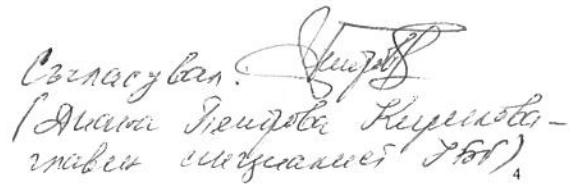 Съгласувал:
(Диана Петрова Кирилова-
главен специалист УБГ)
4